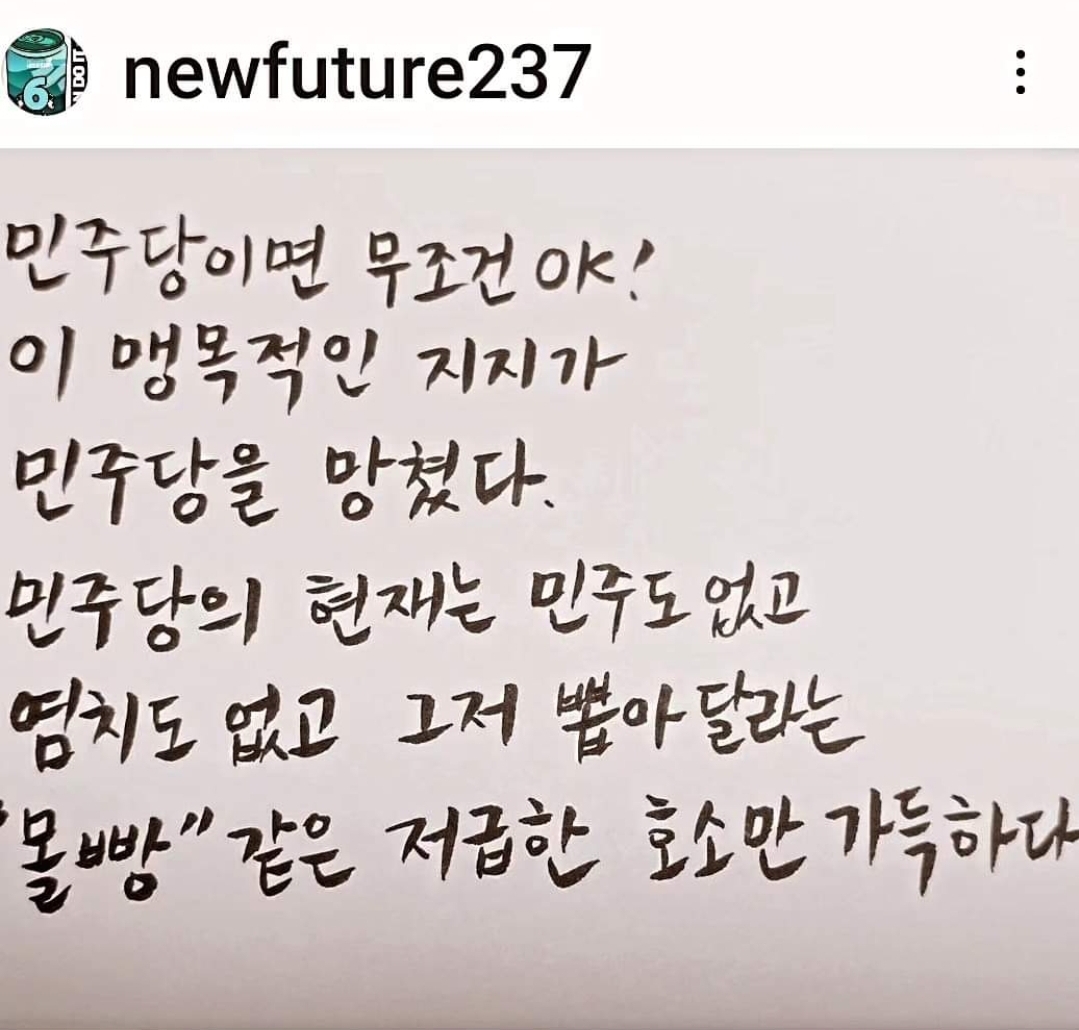 newfuture237
6
N DO IT
민주당이면 무조건 OK!
이 맹목적인 지지가
민주당을 망쳤다.
민주당의 현재는 민주도 없고
염치도 없고 그저 뽑아달라는
"몰빵" 같은 저급한 호소만 가득하다